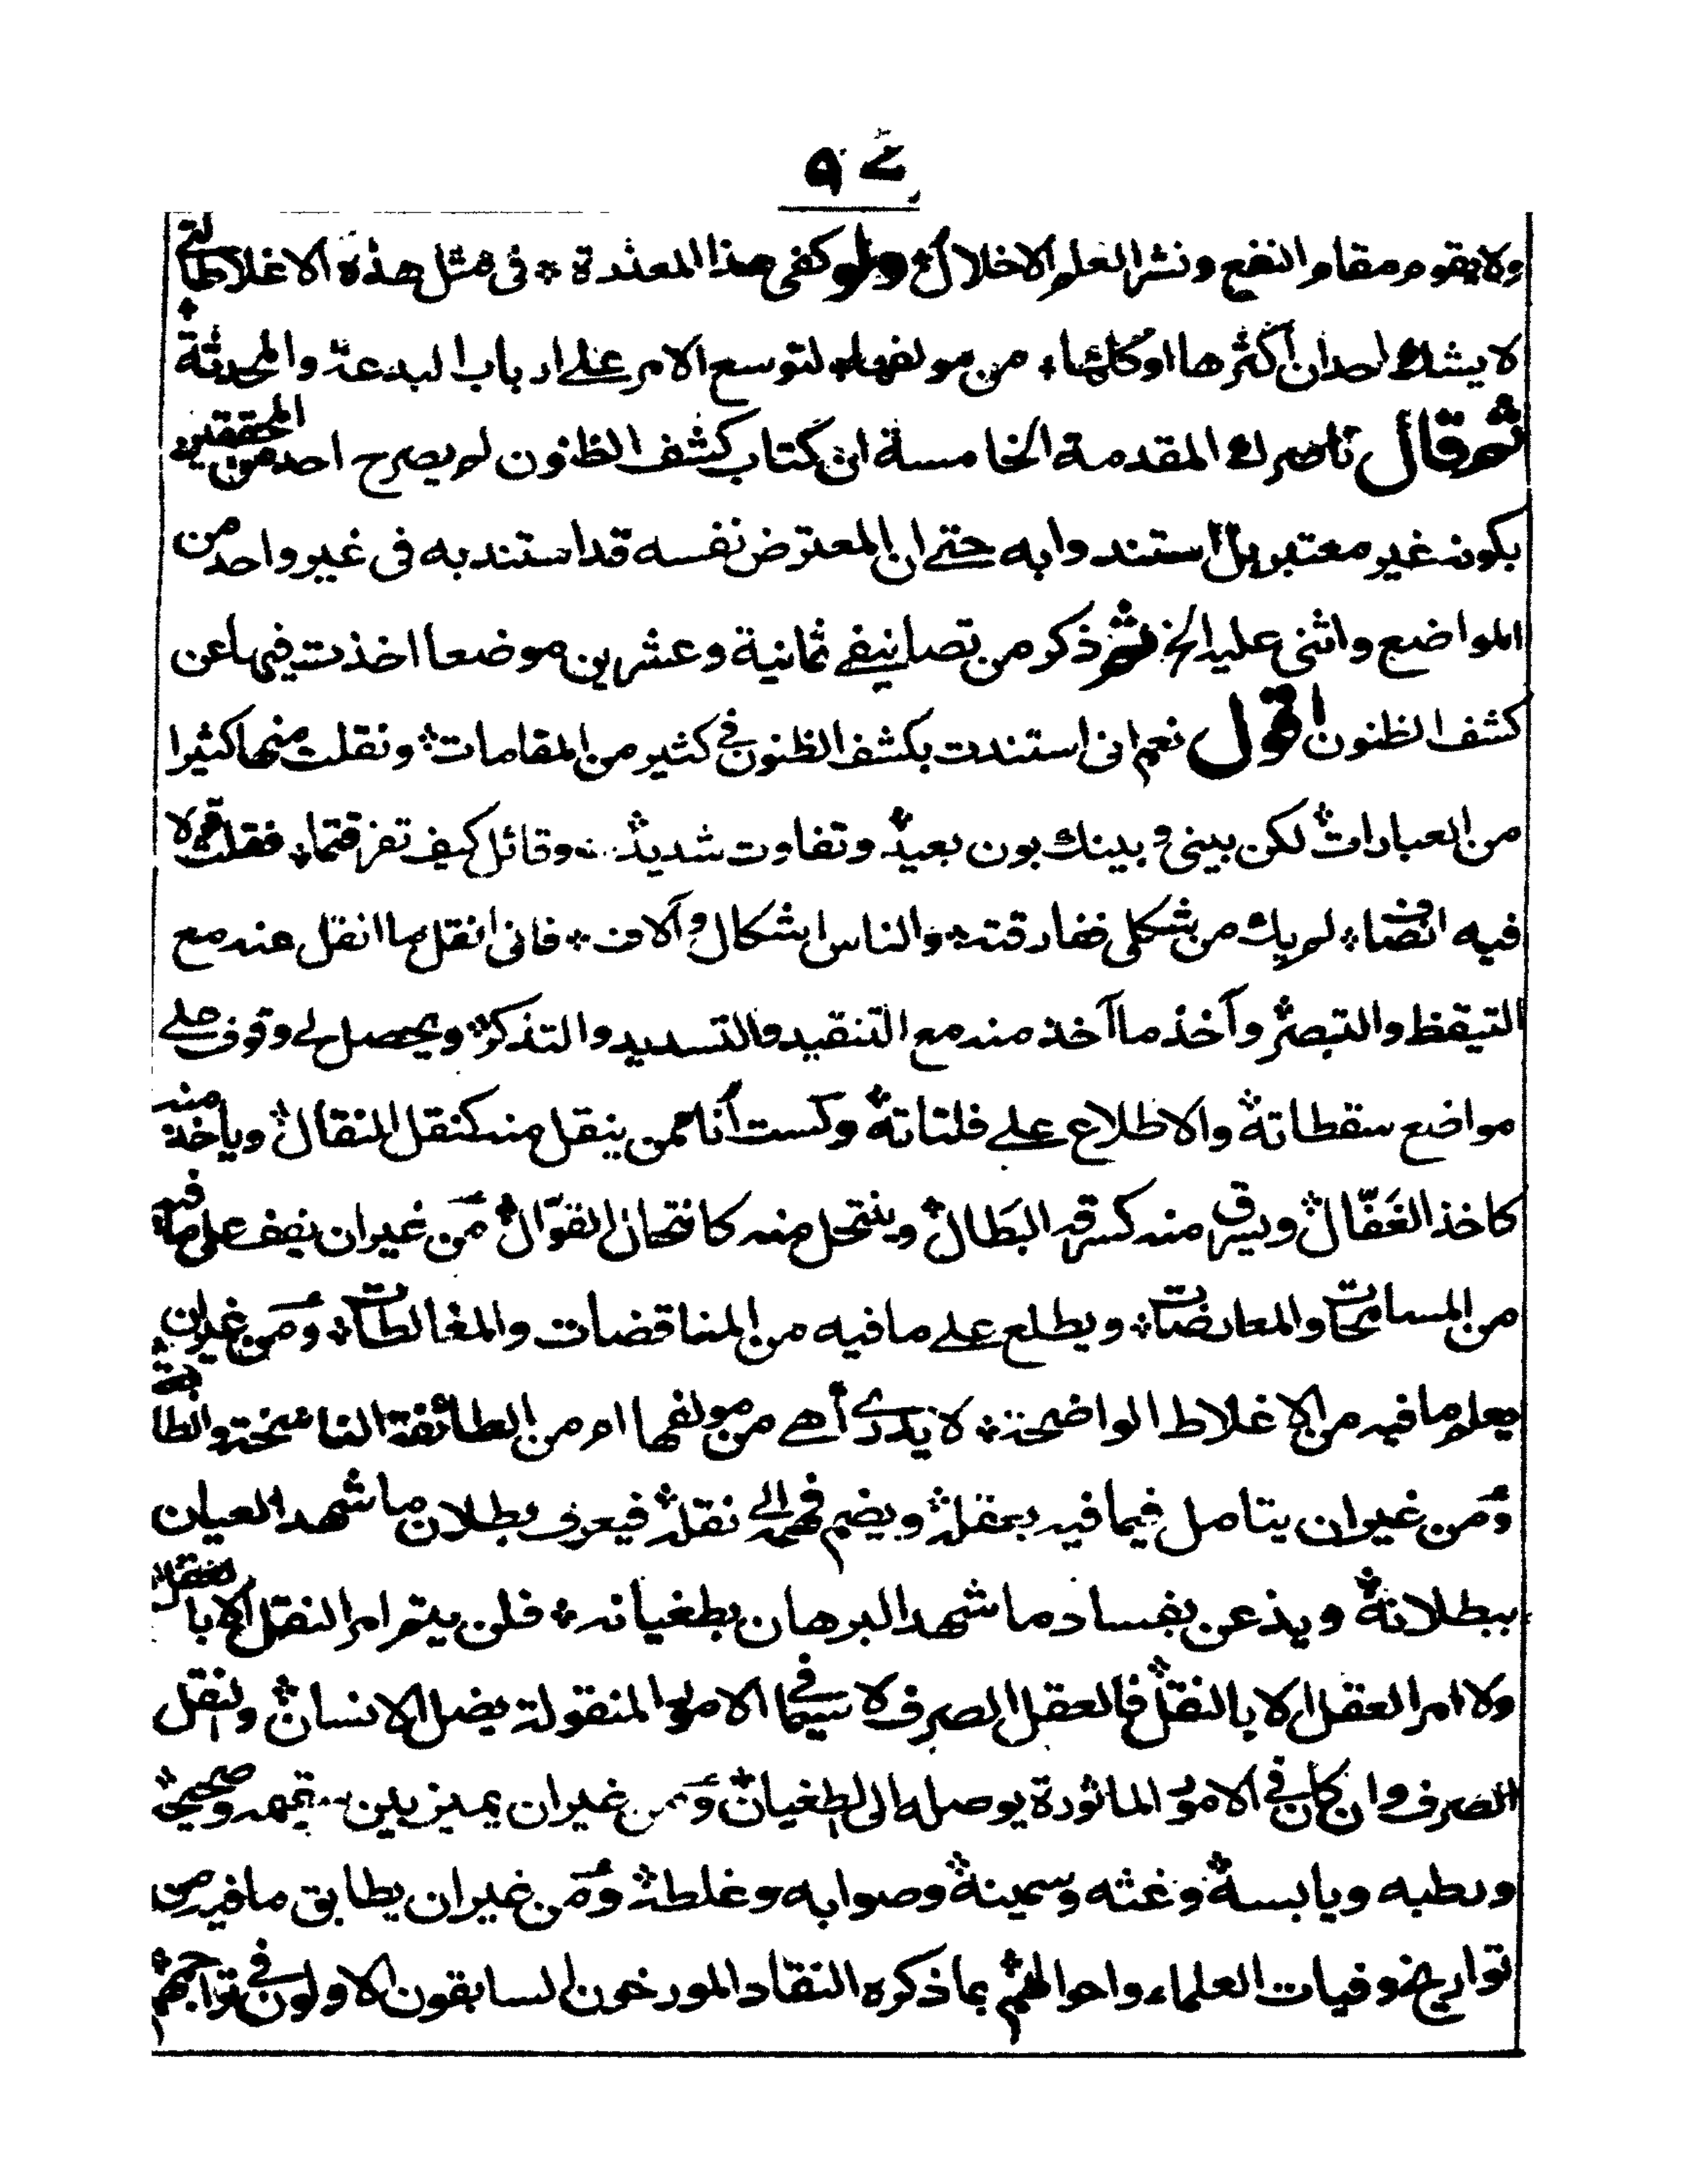 ولا يقوم مقام النفع ونشر العلم الاخلال ولو كفى هذا المعذرة * فى مثل هذه الاغلاط التى
لا يشك احد ان اكثرها او كلها * من مولفها * لتوسع الامر على ارباب البدعة والمحدثة *
ثم قال ناصرك المقدمة الخامسة ان كتاب كشف الظنون لم يصرح احد من المحققين
بكونه غير معتبر بل استندوا به حتى ان المعترض نفسه قد استند به فى غير واحد من
المواضع واثنى عليه الخ ثم ذكر من تصانيفى ثمانية وعشرين موضعا اخذت فيها عن
كشف الظنون اقول نعم انى استندت بكشف الظنون فى كثير من المقامات * ونقلت منها كثيرا
من العبارات * لكن بينى و بينك بون بعيد * وتفاوت شديد * وقائل كيف تفرقتما * فقلت قولا
فيه انصاف * لم يك من شكلى ففارقته * والناس اشكال وآلاف * فانى انقل ما انقل عنه مع
التيقظ والتبصر * وآخذ ما آخذ منه مع التنقيد والتسديد والتذكر * ويحصل لى وقوف على
مواضع سقطاته * والاطلاع على فلتاته * ولست أنا ممن ينقل منه كنقل النقال * وياخذ منه
كاخذ الغَفّال * ويسرق منه كسرقة البَطال * وينتحل منه كانتحال القوّال * من غير ان يقف على ما فيه
من المسامحات والمعارضات * ويطلع على ما فيه من المناقضات والمغالطات * ومن غير ان
يعلم ما فيه من الاغلاط الواضحة * لا يدرى أهى من مولفها ام من الطائفة الناسخة والطابعة *
ومن غير ان يتامل فيما فيه بعقله * ويضم فهمه الى نقله * فيعرف بطلان ما شهد العيان
ببطلانه * ويذعن بفساد ما شهد البرهان بطغيانه * فلن يتم امر النقل الا بالعقل *
ولا امر العقل الا بالنقل * فالعقل الصرف لا سيما فى الامور المنقولة يضل الانسان * والنقل
الصرف وان كان فى الامور الماثورة يوصله الى الطغيان * ومن غير ان يميز بين سقيمه وصحيحه *
ورطبه ويابسه * وغثه وسمينه * وصوابه وغلطه * ومن غير ان يطابق ما فيه من
تواريخ وفيات العلماء واحوالهم * بما ذكره النقاد المورخون السابقون الاولون فى تراجمهم *